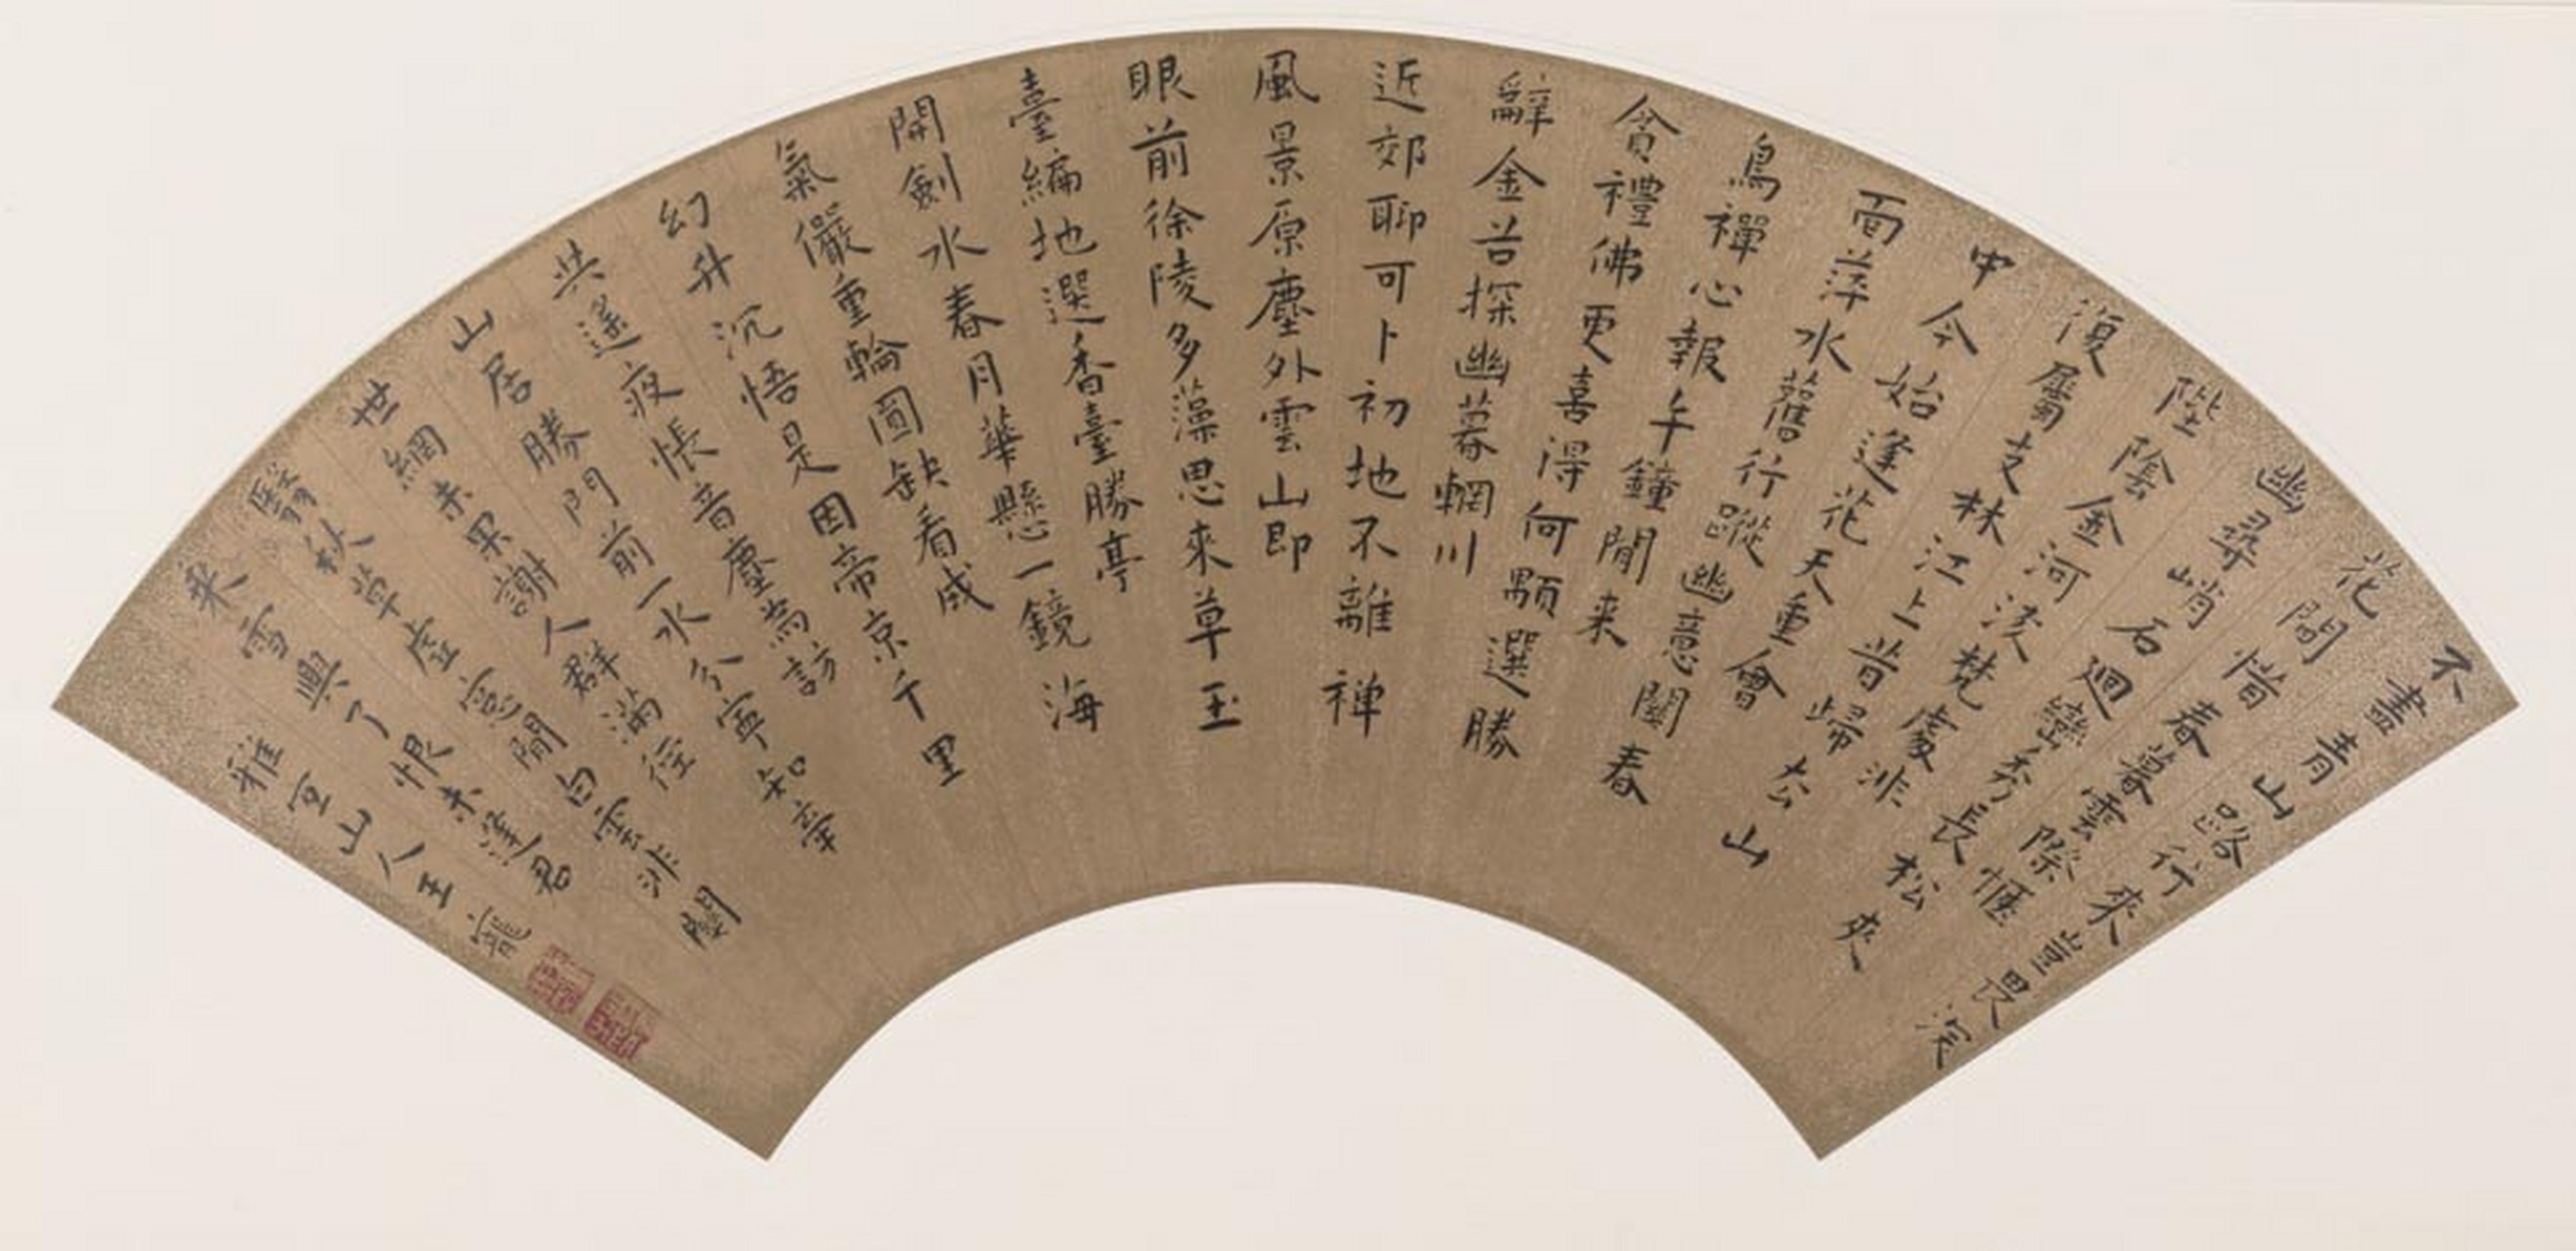 不盡青山路行來豈畏深
花間惜春暮雲際愜
幽尋峭石迴巒秀長松夾
陛陰金河浚梵處非
復屬支林江上昔歸去山
中今始逢花天重會
面萍水舊行蹤幽意關春
鳥禪心報午鐘閒来
貪禮佛更喜得何顒選勝
辭金苔探幽慕輞川
近郊聊可卜初地不離禅
風景原塵外雲山即
眼前徐陵多藻思來草玉
臺編地選香臺勝亭
開劍水春月華懸一鏡海
氣儼重輪圓缺看成
幻升沉悟是因帝京千里
共遙夜悵音塵為訪
山居勝門前一水分寧知牽
世網未果謝人群滿徑
翳秋草虛窓閒白雲非關
乘雪興了恨未逢君
雅宜山人王寵